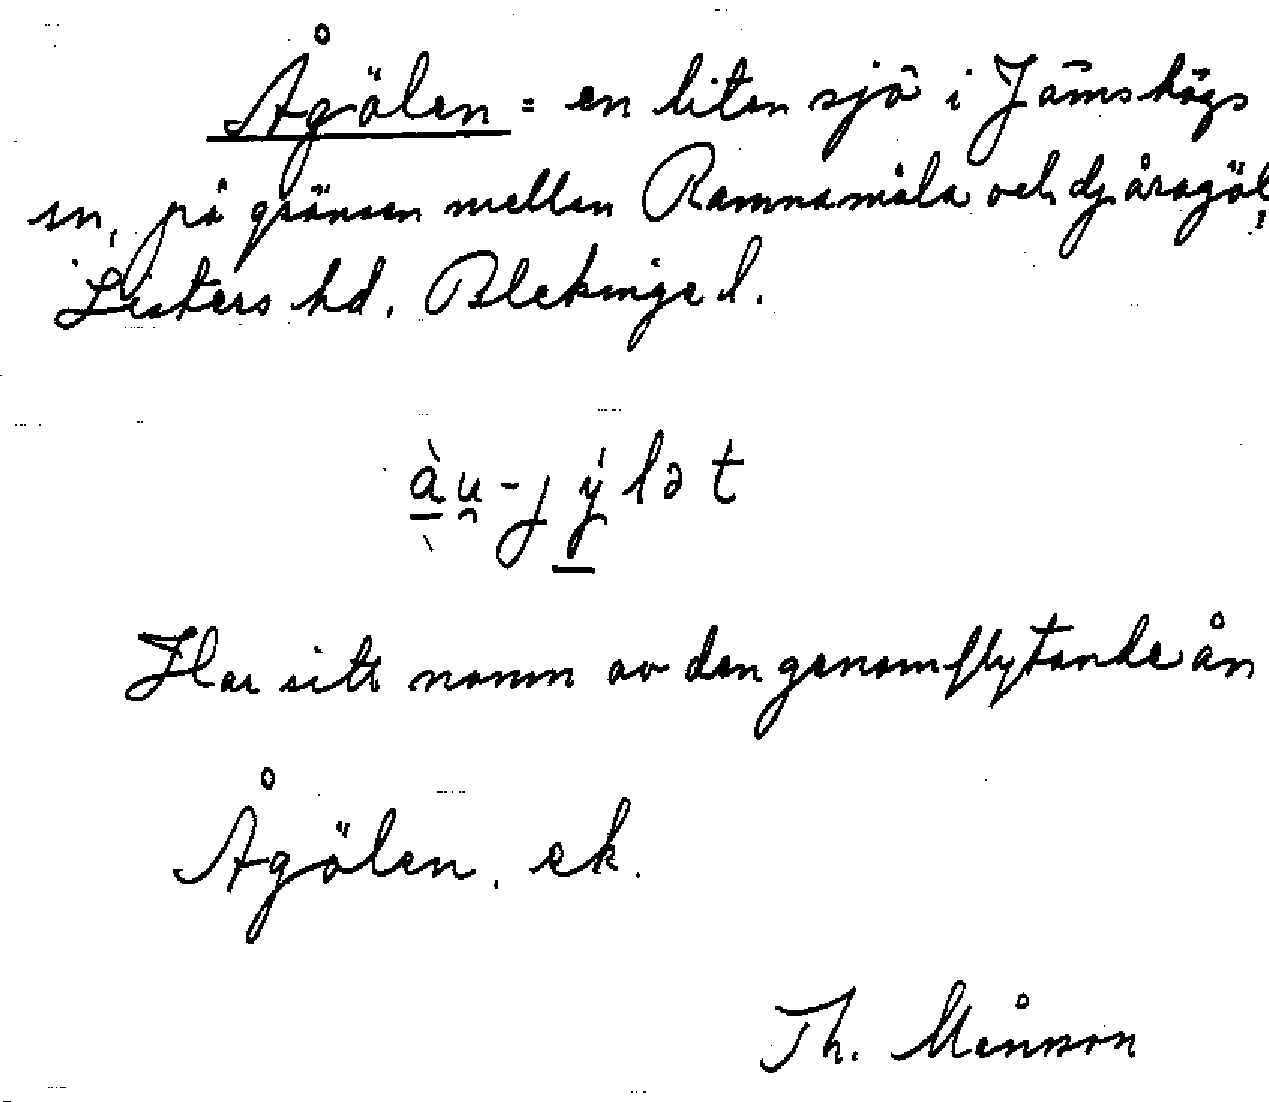 Ågölen = en liten sjö i Jämshögs
sn, på gränsen mellan Ramnamåla och djåragöl,
Listers hd. Blekinge l.
àu̯-jýlət
Har sitt namn av den genomflytande ån
Ågölen, ek.
Th. Månsson